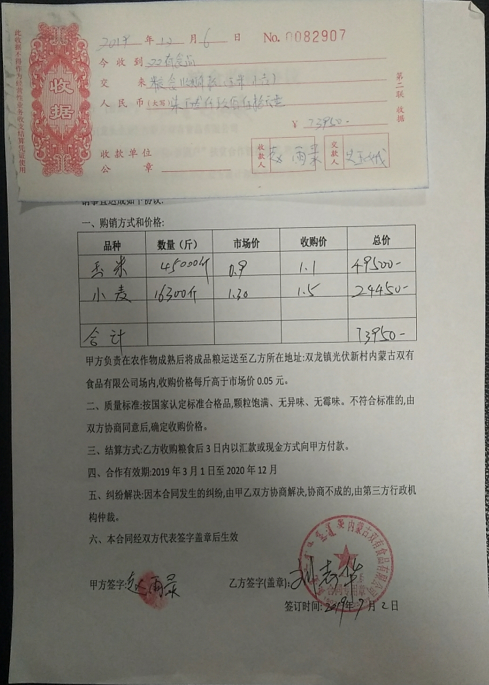 2019年12月6日 No.0082907
今收到双有食品
交来
人民币(大写)
¥73950-
收款单位
公章
收款人
交款人
收据
第二联 收据
此收据不得作为经营性业务收支结算凭证使用
销事宜达成如下协议:
一、购销方式和价格:
品种 数量（斤） 市场价 收购价 总价
玉米 45000斤 0.9 1.1 49500-
小麦 16300斤 1.30 1.5 24450-
合计 73950-
甲方负责在农作物成熟后将成品粮运送至乙方所在地址:双龙镇光伏新村内蒙古双有
食品有限公司场内,收购价格每斤高于市场价 0.05 元。
二、质量标准:按国家认定标准合格品,颗粒饱满、无异味、无霉味。不符合标准的,由
双方协商同意后,确定收购价格。
三、结算方式:乙方收购粮食后 3 日内以汇款或现金方式向甲方付款。
四、合作有效期:2019 年 3 月 1 日至 2020 年 12 月
五、纠纷解决:因本合同发生的纠纷,由甲乙双方协商解决,协商不成的,由第三方行政机
构仲裁。
六、本合同经双方代表签字盖章后生效
内蒙古双有食品有限公司
甲方签字: 乙方签字(盖章): 刘志华
签订时间: 2019年7月2日